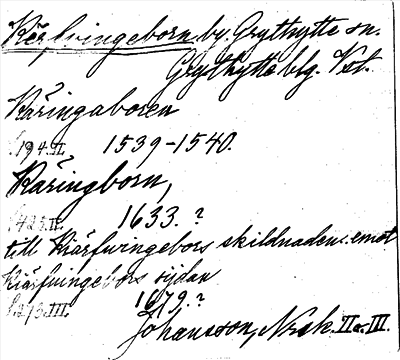 Kärfvingeborn by. Grythytte sn.
Grythytte blg. Vst.
Käringaboren
s. 194. II. 1539-1540.
Käringborn,
s. 423. II. 1633. ?
till Kiärfwingebors skildnaden emot
Kiärfvingebors sijdan
s. 273. III. 1679. ?
Johansson, Norsk. II o. III.